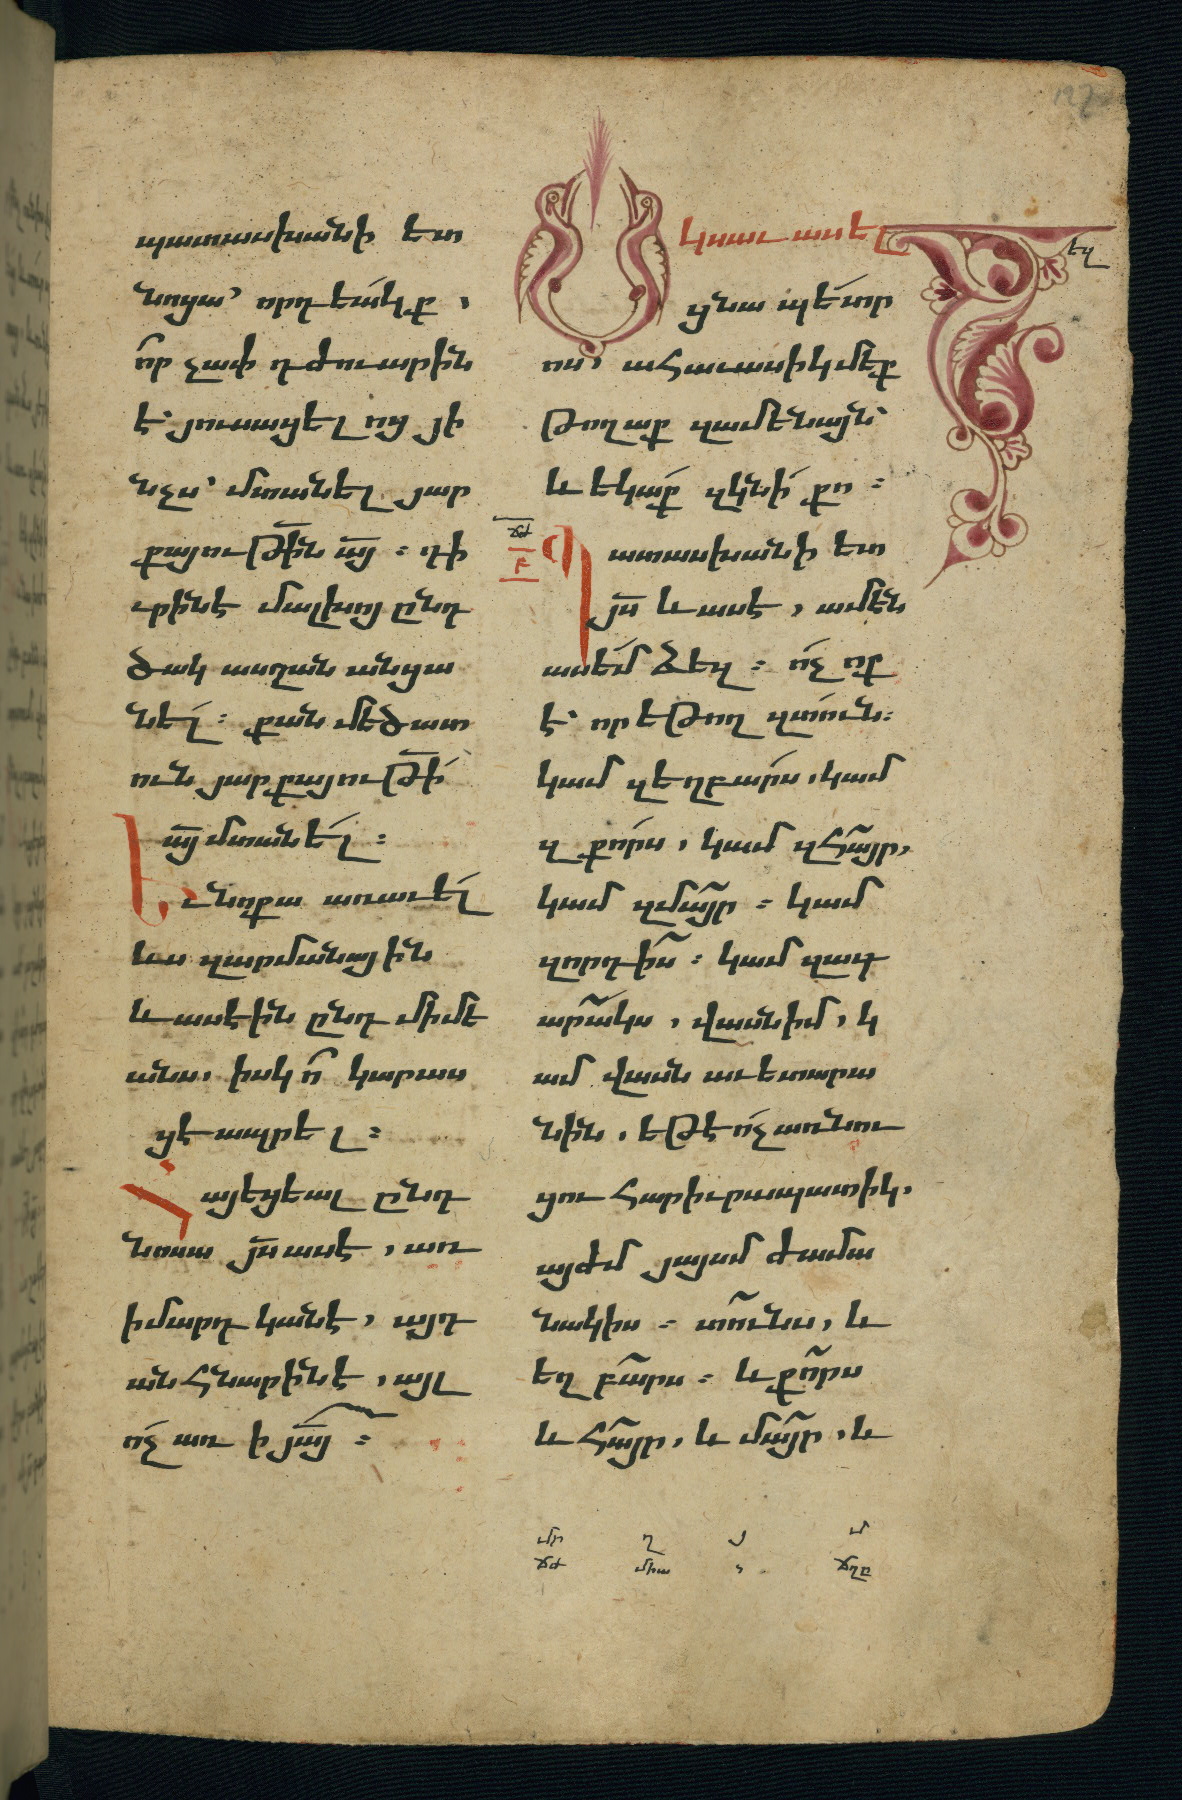 պատասխանի ետ
նոցա՝ որդեակք,
ո՞ր չափ դժուարին
է՝ յուսացելոց յի
նչս՝ մտանել յար
քայութիւն այ ։ դի
ւրինէ մալխոյ ընդ
ծակ ասղան անցա
նել ։ քան մեծատ
ուն յարքայութի
այ մտանել ։
Եւ նոքա առաւել
ևս զարմանային
և ասէին ընդ միմե
անս, իսկ ո՞ կարաս
ցէ ապրել ։
Հայեցեալ ընդ
նոսա յս ասէ, առ
ի մարդկանէ, այդ
անհնարին է, այլ
ոչ առ ի յայ ։
Սկսաւ ասել
ցնա պետր
ոս, ահաւասիկ մեք
թողաք զամենայն՝
և եկաք զկնի քո ։
Պատասխանի ետ
յս և ասէ, ամէն
ասեմ ձեզ ։ ոչ ոք
է՝ որ եթող զտուն։
կամ զեղբարս, կամ
զքորս, կամ զհայր,
կամ զմայր ։ կամ
զորդիս ։ կամ զագ
արակս, վասն իմ, կ
ամ վասն աւետարա
նին, եթէ ոչ առնու
ցու հարիւրապատիկ,
այժմ յայսմ ժամա
նակիս ։ տունս, և
եղբարս ։ և քորս
և հայր, և մայր, և
եզ
ճժ
բ
մր ղ յ մ
ճժ միա ճղբ
127